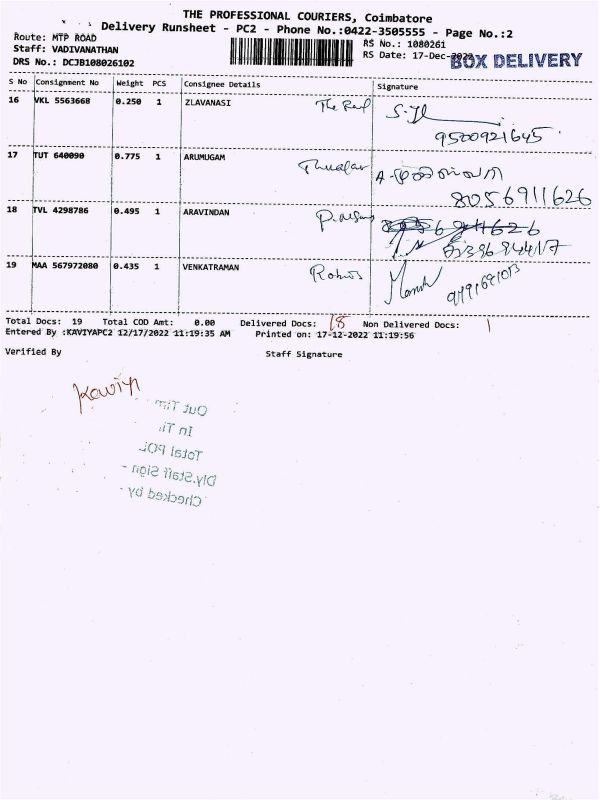 THE PROFESSIONAL COURIERS, Coimbatore
Delivery Runsheet - PC2 - Phone No.:0422-3505555 - Page No.:2
Route: MTP ROAD
RS No.: 1080261
Staff: VADIVANATHAN
RS Date: 17-Dec-2022
BOX DELIVERY
DRS No.: DCJB108026102
S No Consignment No Weight PCS Consignee Details Signature
16 VKL 5563668 0.250 1 ZLAVANASI
9500921645
17 TUT 640090 0.775 1 ARUMUGAM
8056911626
18 TVL 4298786 0.495 1 ARAVINDAN
19 MAA 567972080 0.435 1 VENKATRAMAN
Total Docs: 19 Total COD Amt: 0.00 Delivered Docs: 18 Non Delivered Docs: 1
Entered By :KAVIYAPC2 12/17/2022 11:19:35 AM Printed on: 17-12-2022 11:19:56
Verified By Staff Signature
Out Tim
In Ti
Total POL
Dly.Staff Sign -
Checked by -